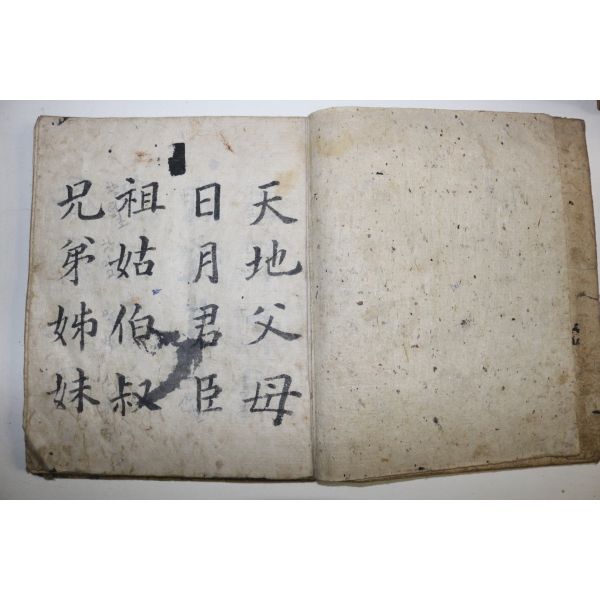 天地父母
日月君臣
祖姑伯叔
兄弟姊妹